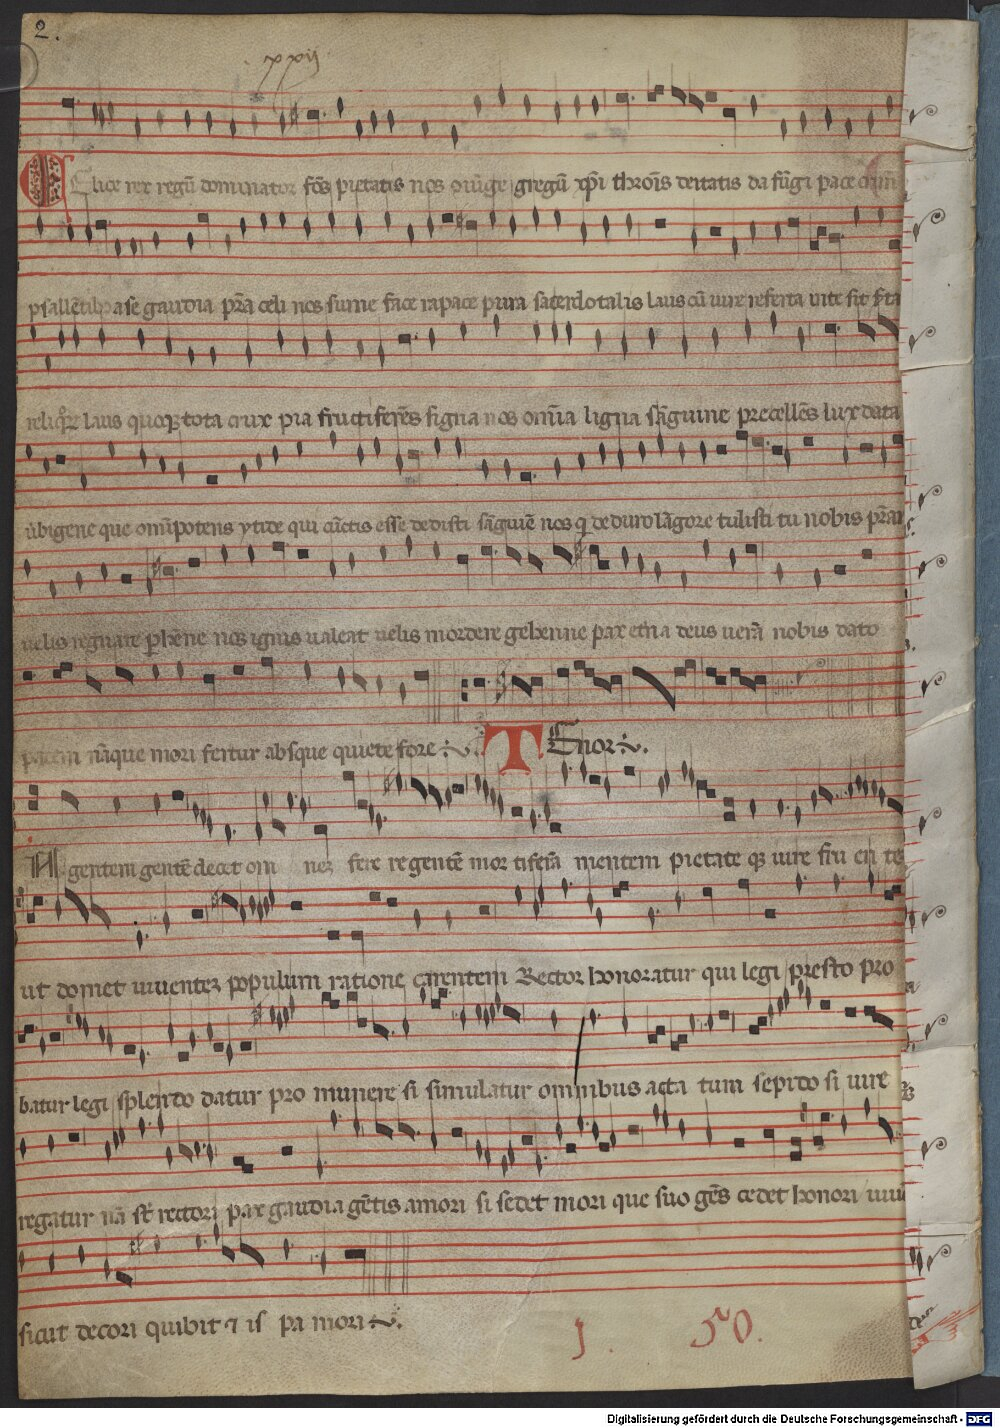 2.
xxij
Celice rex regū dominator fōs pietatis nos oiūqe gregū xp̄i thronis deitatis da fūgi pace
psallētibꝫ a se gaudia pr̄a celi nos sume face rapace pura sacerdotalis laus cū uire referta uite sit
laus quoqꝫ tota crux pia fructiferēs signa nos om̄ia ligna sāguine precellēs lux data
ubigene que om̄ipotens ytide qui cūctis esse dedisti sāguiē nos deduro lāgore tulisti tu nobis
uelis regnare nos ignis ualeat uelis mordere gehenne pax etna deus uera nobis dato
nāque mori fertur absque quiete fore
Tenor
Ingentem gentē decet om nez fere regentē mortiferā mentem pietate qꝫ uire frui en te
ut domet uiuentez populum ratione carentem Rector honoratur qui legi presto pro
batur legi splendo datur pro munere si simulatur omnibus acta tum sepido si uire
regatur nā rectori pax gaudia gētis amori si sedet mori que suo gēs cedet honori
sicut decori quibit ⁊ is pa mori
Digitalisierung gefördert durch die Deutsche Forschungsgemeinschaft - DFG